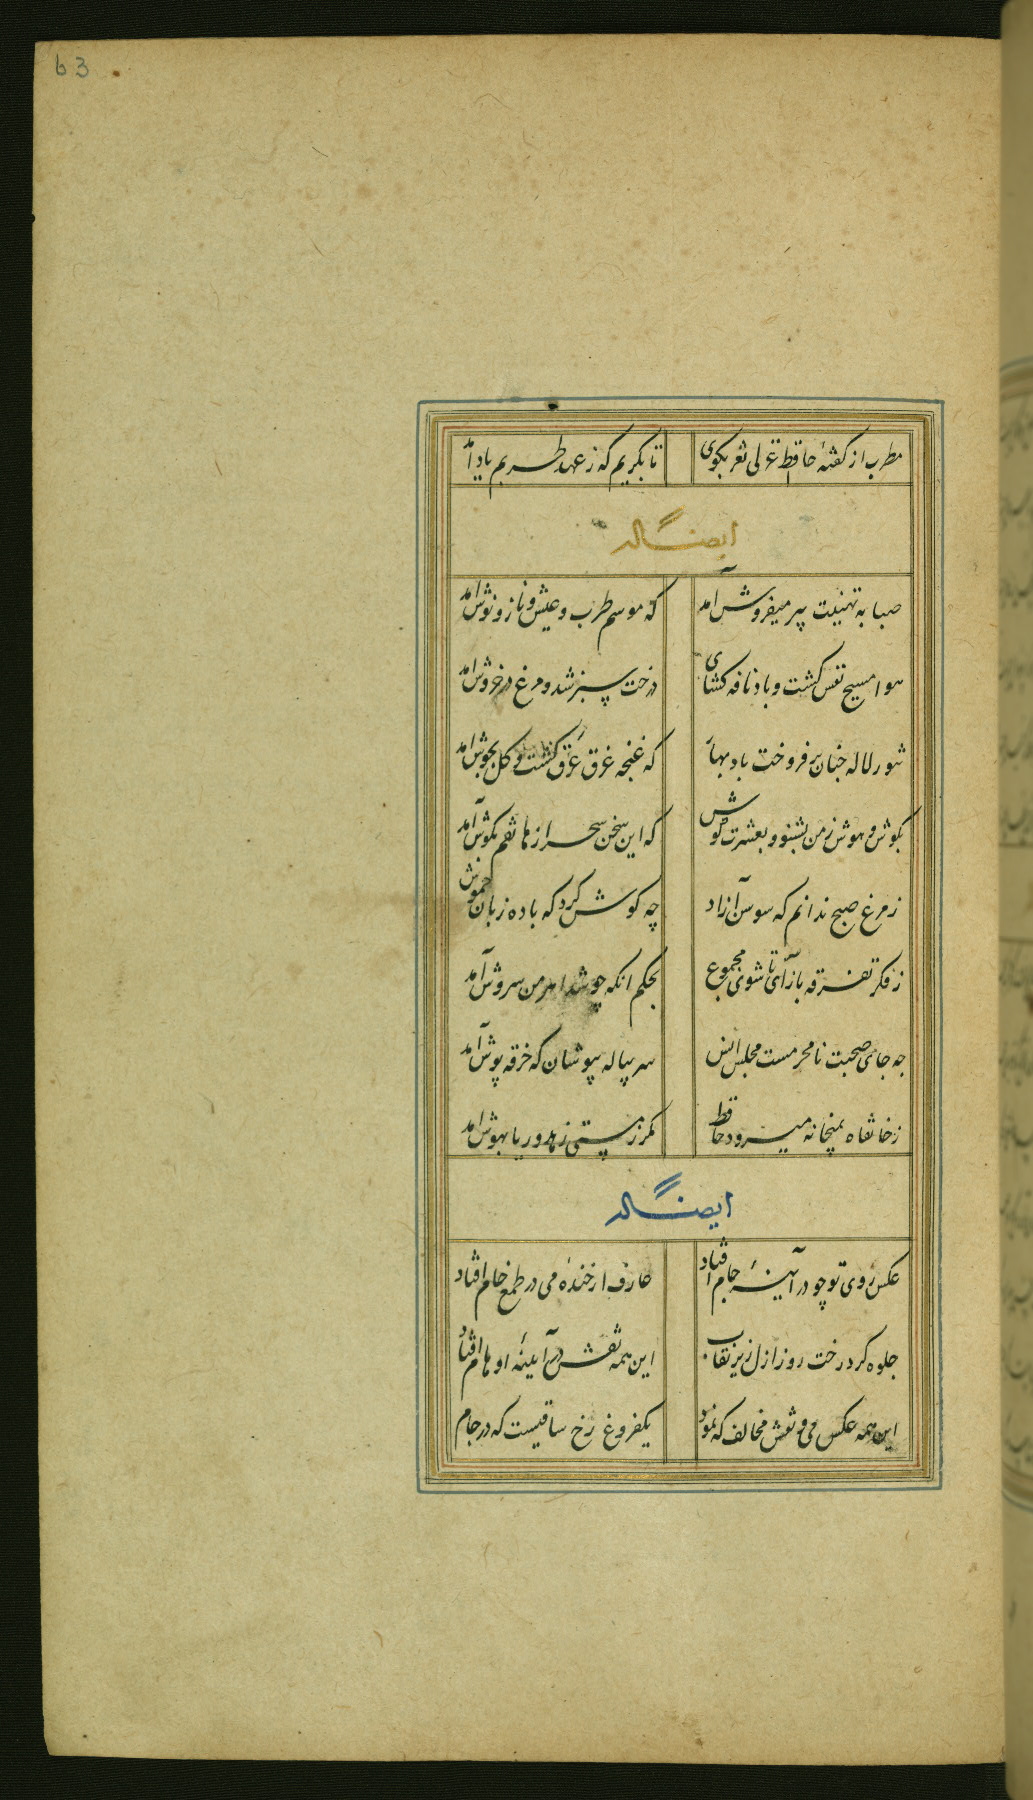 63
مطرب از کفتهٔ حافظ غزلی نغز بکوی
تا بکریم که ز عهد طربم یاد آمد
ایضاً له
صبا به تهنیت پیر میفروش آمد
که موسم طرب و عیش و ناز و نوش آمد
هوا مسیح نفس کشت و باد نافه کشای
درخت سبز شد و مرغ در خروش آمد
تنور لاله چنان بر فروخت باد بهار
که غنچه غرق عرق کشت و کل بجوش آمد
بکوش و هوش ز من بشنو و بعشرت کوش
که این سخن سحر از هاتفم بکوش آمد
ز مرغ صبح ندانم که سوسن آزاد
چه کوش کرد که باده زبان خموش
ز فکر تفرقه بازآی تا شوی مجموع
بحکم انکه چو شد اهرمن سروش آمد
چه جای صحبت نامحرمست مجلس انس
سر پیاله بپوشان که خرقه پوش آمد
ز خانقاه بمیخانه میرود حافظ
مکر ز مستی زهد و ریا بهوش امد
ایضاً له
عکس روی تو چو در آینهٔ جام افتاد
عارف از خندهٔ می در طمع خام افتاد
جلوه کرد رخت روز ازل زیر نقاب
این همه نقش در آیینهٔ اوهام افتاد
این همه عکس می و نقش مخالف که نمود
یکفروغ رخ ساقیست که در جام